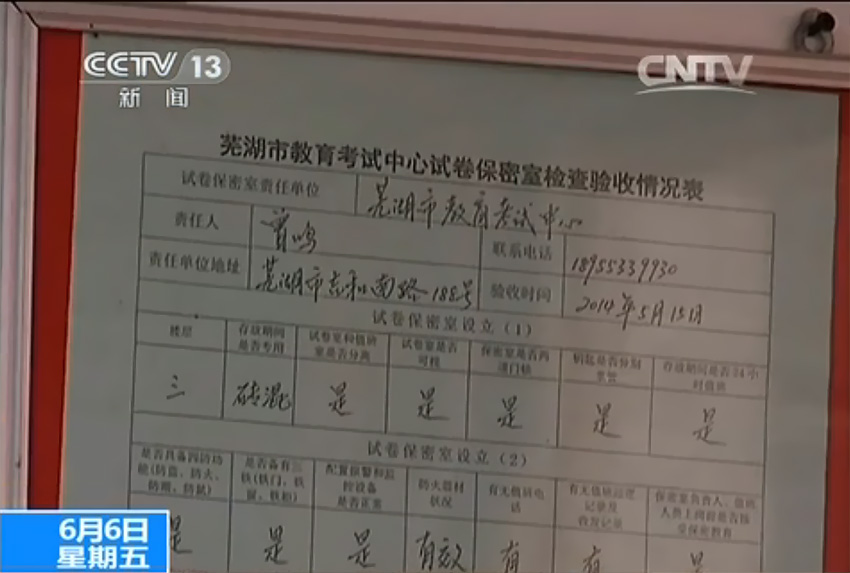 CCTV 13
新闻
CNTV
芜湖市教育考试中心试卷保密室检查验收情况表
试卷保密室责任单位 芜湖市教育考试中心
责任人 曾鸣 联系电话 18955339930
责任单位地址 芜湖市吉和南路188号 验收时间 2014年5月15日
试卷保密室设立(1)
楼层 存放期间是否专用 试卷室和值班室是否分离 试卷室是否可核 保密室是否两道门锁 钥匙是否分别掌管 存放期间是否24小时值班
三 砖混 是 是 是 是 是
试卷保密室设立(2)
是否具备四防功能(防盗、防火、防潮、防鼠) 是否备有三铁(铁门、铁窗、铁柜) 配置报警和监控设备是否正常 防火器材状况 有无值班电话 有无值班巡逻记录及收发记录 保密室负责人、值班人员上岗前是否接受保密教育
是 是 是 有效 有 有 是
6月6日
星期五